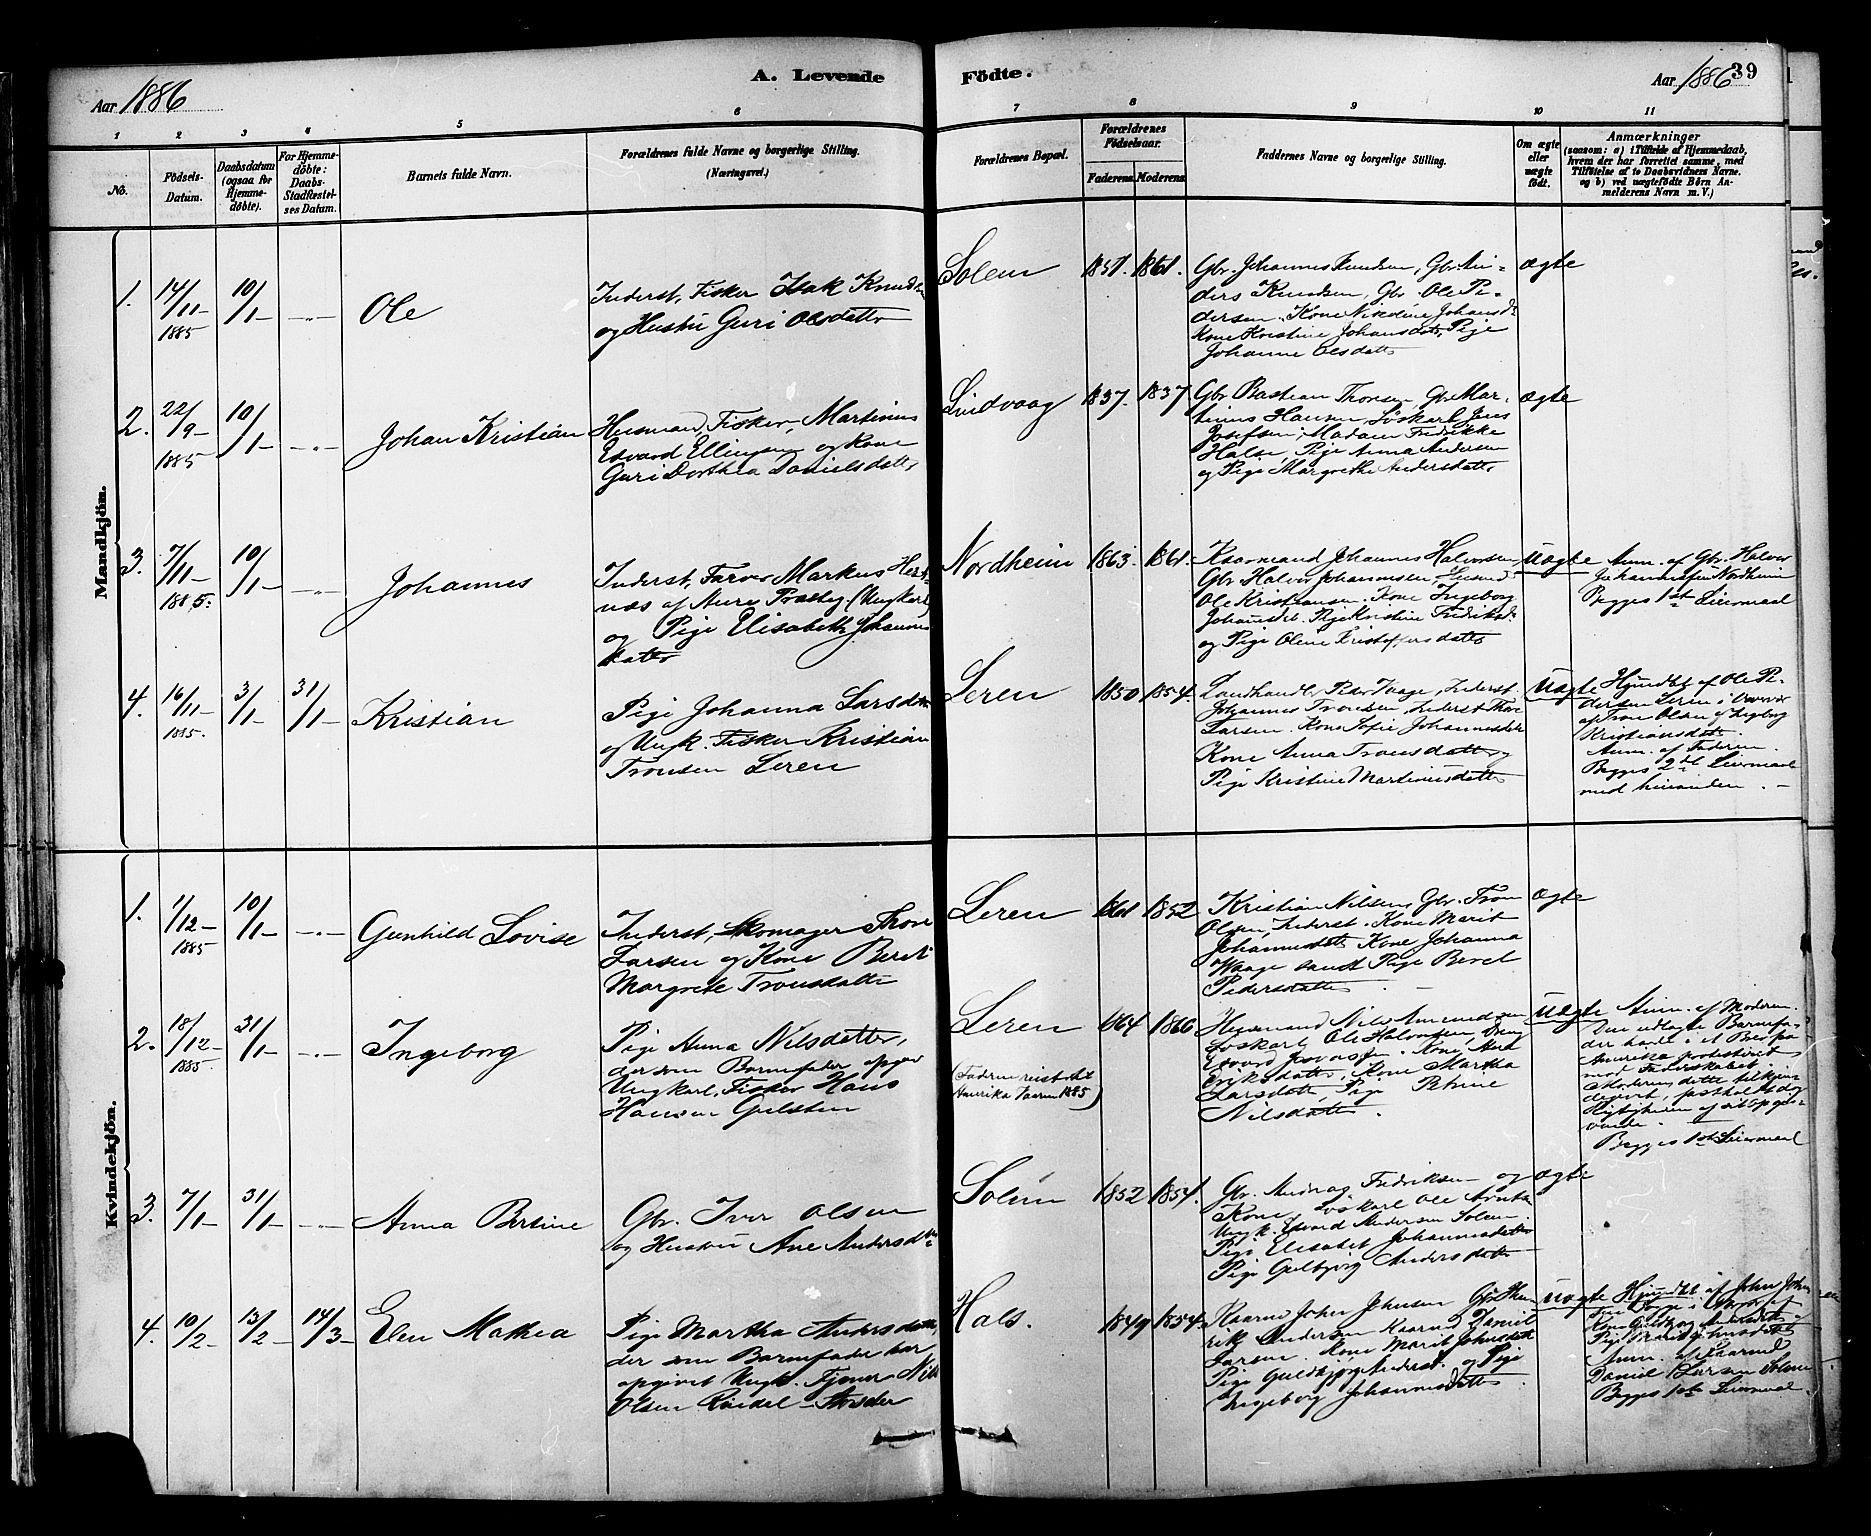 A. Levende Födte.
Aar 1886
Aar 1886 39
1 2 3 4 5 6 7 8 9 10 11
No.
Födsels-
Datum.
Daabsdatum
(ogsaa for
Hjemme-
döbte).
For Hjemme-
döbte:
Daabs-
Stadfæstel-
ses Datum.
Barnets fulde Navn.
Forældrenes fulde Navne og borgerlige Stilling.
(Næringsvei.)
Forældrenes Bopæl.
Forældrenes
Födselsaar.
Faderens. Moderens.
Faddernes Navne og borgerlige Stilling.
Om ægte
eller
uægte
födt.
Anmærkninger
(saasom: a) i Tilfælde af Hjemmedaab,
hvem der har forrettet samme, med
Tilföielse af to Daabsvidners Navne.
og b) ved uægtefödte Börn An-
melderens Navn m. V.)
Mandkjön.
1. 14/11 1885 10/1 -"- Ole
Inderst, Fisker Isak Knuds
og Hustru Guri Olsdatter
Solem 1851. 1861.
Gbr. Johannes Knudsen, Gbr. An-
ders Knudsen, Gbr. Ole Pe-
dersen, Kone Nikoline Johansd
Kone Kristine Johansdatr, Pige
Johanne Olsdattr
ægte
2. 22/9 1885 10/1 -"- Johan Kristian
Husmand, Fisker, Martinus
Edvard Ellingsen og Kone
Guri Dorthea Danielsdattr
Lindvaag 1837. 1837
Gbr Bastian Thorsen, Gbr Mar-
tinus Hansen, Söskarl Jens
Josefsen, Madam Fredrikke
Halse, Pige Anna Andersen
og Pige Margrethe Andersdattr
ægte
3. 7/11 1885: 10/1 -"- Johannes
Inderst, Farver Markus Her-
næs af Aure Præsteg. (Ungkarl)
og Pige Elisabeth Johannes
datter
Nordheim 1863. 1861.
Kaarmand Johannes Halvorsen,
Gbr Halvor Johannesen,
Ole Kristiansen. Kone Ingeborg
Johansdtr. Pige Kristine Fredriksd:
og Pige Oline Kristoffersdattr
uægte
Anm. af Gbr. Halvor
Johannesen Nordheim
Begges 1st Leiermaal
4. 16/11 1885. 3/1 31/1 Kristian
Pige Johanna Larsdtr
og Ungk. Fisker Kristian
Tronsen Leren
Leren 1850 1854.
Landhandler Peter Vaage, Inderst
Johannes Tronsen, Inderst Thore
Larsen. Kone Sofie Johannesdtr
Kone Anna Tronsdattr og
Pige Kristine Martinusdattr
uægte
Hjmdbt af Ole Pe-
dersen Leren i Overvær
af Tron Olsen og Ingeborg
Kristiansdattr.
Anm. af Faderen.
Begges 2det Leiermaal
med hinanden. -
Kvindekjön.
1. 1/12 1885 10/1 -"- Gunhild Lovise
Inderst, Skomager Thore
Larsen og Kone Berit
Margrete Tronsdattr
Leren 1861 1852
Kristian Nilsen, Gbr. Tron
Olsen, Inderst. Kone Marit
Johannesdtr Kone Johanna
Waage samt Pige Beret
Pedersdattr
ægte
2. 18/12 1885 31/1 -"- Ingeborg
Pige Anna Nilsdatter,
der som Barnefader opgav
Ungkarl, Fisker Hans
Hansen Gulsten
Leren 1864 1866
(Faderen reist til
Amerika 1885)
Husmand Nils Amundsen
Söskarl Ole Halvorsen, Dreng
Edvard
Eriksdattr, Kone Martha
Larsdattr, Pige Petrine
Nilsdattr.
uægte
Anm. af Moderen.
Den udlagte Barnefa-
der havde i et Brev fra
Amerika protesteret
mod Faderskabet
Moderen, dette tilkjen-
degivet, fastholdt dog
Rigtigheden af sit Opgi-
vende.
Begges 1st Leiermaal
3. 7/1 31/1 -"- Anna Bertine
Gbr. Iver Olsen
og Hustru Ane Andersdtr
Solem 1852 1854.
Gbr. Andreas Fredriksen og
Kone, Söskarl Ole
Ungk. Edvard Andersen Solem.
Pige Elisabet Johannesdattr
Pige Gulbjörg Andersdattr
ægte
4. 10/2 13/2 14/3 Elen Mathea
Pige Martha Andersdattr,
der som Barnefader har
opgivet Ungk. Tjener Nils
Olsen
Hals. 1849 1854.
Kaarmd John Johnsen
Andersen Kaarmd Daniel
Larsen. Kone Marit Johnsdattr
Pige Guldbjörg Andersdt. og Pige
Ingeborg Johannesdattr
uægte
Hjmdbt af John
Anm. af Kaarmd
Daniel Larsen Solem
Begges 1st Leiermaal.